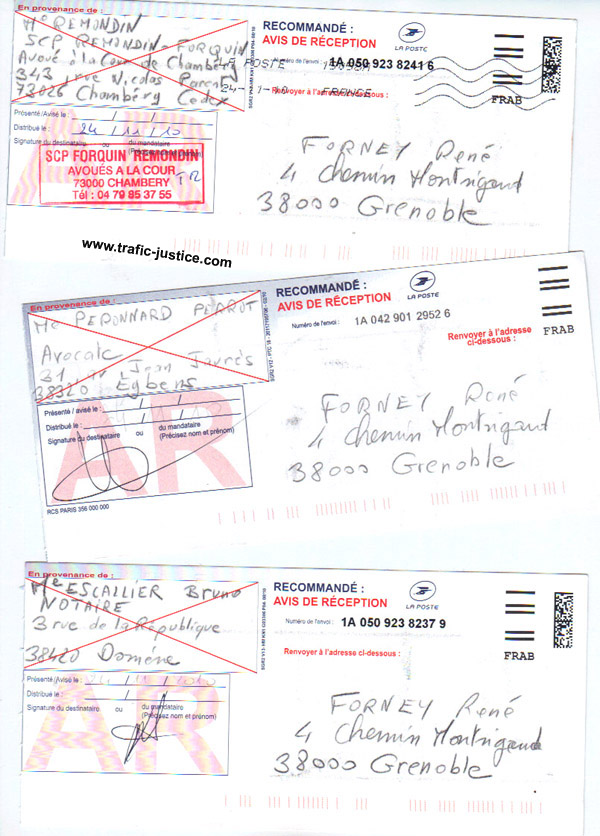 En provenance de :
Me REMONDIN
SCP REMONDIN - FORQUIN
Avoué à la Cour de Chambéry
343 rue Nicolas Parent
73026 Chambéry Cedex
Présenté/Avisé le : / /
Distribué le : 24 / 11 / 10
Signature du destinataire ou du mandataire
(Précisez nom et prénom)
SCP FORQUIN REMONDIN
AVOUÉS A LA COUR
73000 CHAMBERY
Tél : 04 79 85 37 55
RECOMMANDÉ :
AVIS DE RÉCEPTION
LA POSTE
Numéro de l'envoi : 1A 050 923 8241 6
LA POSTE
FRANCE
Renvoyer à l'adresse ci-dessous :
FRAB
FORNEY René
4 Chemin Montrigaud
38000 Grenoble
www.trafic-justice.com
En provenance de :
Me PERONNARD PERROT
Avocate
31 Jean Jaurès
38320 Eybens
Présenté / avisé le : / /
Distribué le : / /
Signature du destinataire ou du mandataire
(Précisez nom et prénom)
AR
RCS PARIS 356 000 000
RECOMMANDÉ :
AVIS DE RÉCEPTION
LA POSTE
Numéro de l'envoi : 1A 042 901 2952 6
Renvoyer à l'adresse
ci-dessous :
FRAB
FORNEY René
4 Chemin Montrigaud
38000 Grenoble
En provenance de :
Me ESCALLIER Bruno
NOTAIRE
3 rue de la République
38420 Domène
Présenté /Avisé le : 24 / 11 / 2010
Distribué le : / /
Signature du destinataire ou du mandataire
(Précisez nom et prénom)
AR
RECOMMANDÉ :
AVIS DE RÉCEPTION
LA POSTE
Numéro de l'envoi : 1A 050 923 8237 9
Renvoyer à l'adresse ci-dessous :
FRAB
FORNEY René
4 Chemin Montrigaud
38000 Grenoble